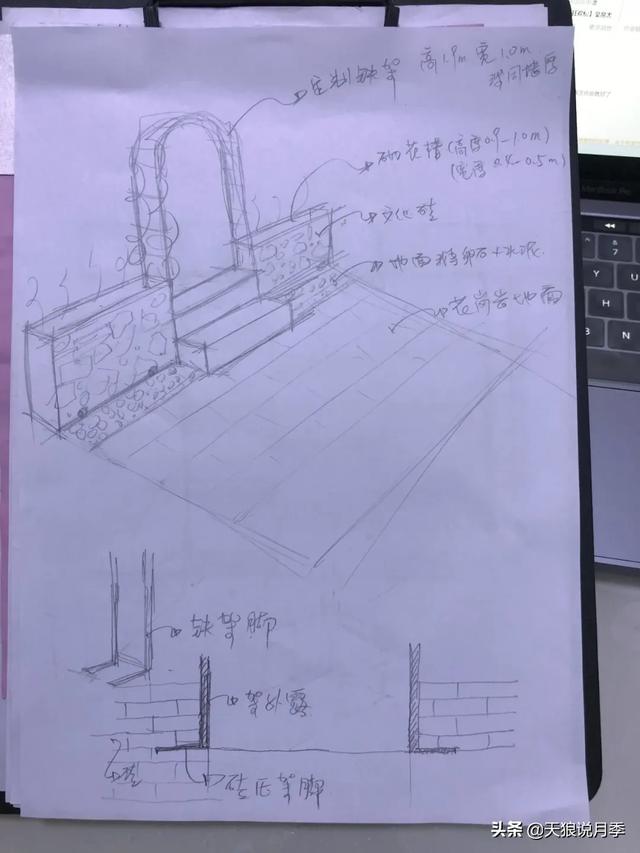 定制铁架 高1.9m 宽1.0m
深同墙厚
砌花槽(高度0.9-1.0m)
(宽度0.4-0.5m)
文化砖
地面鹅卵石+水泥
花岗岩地面
铁架脚
架外露
砖压架脚
头条 @天狼说月季
MacBook Pro
Y
U
H
J
B
N